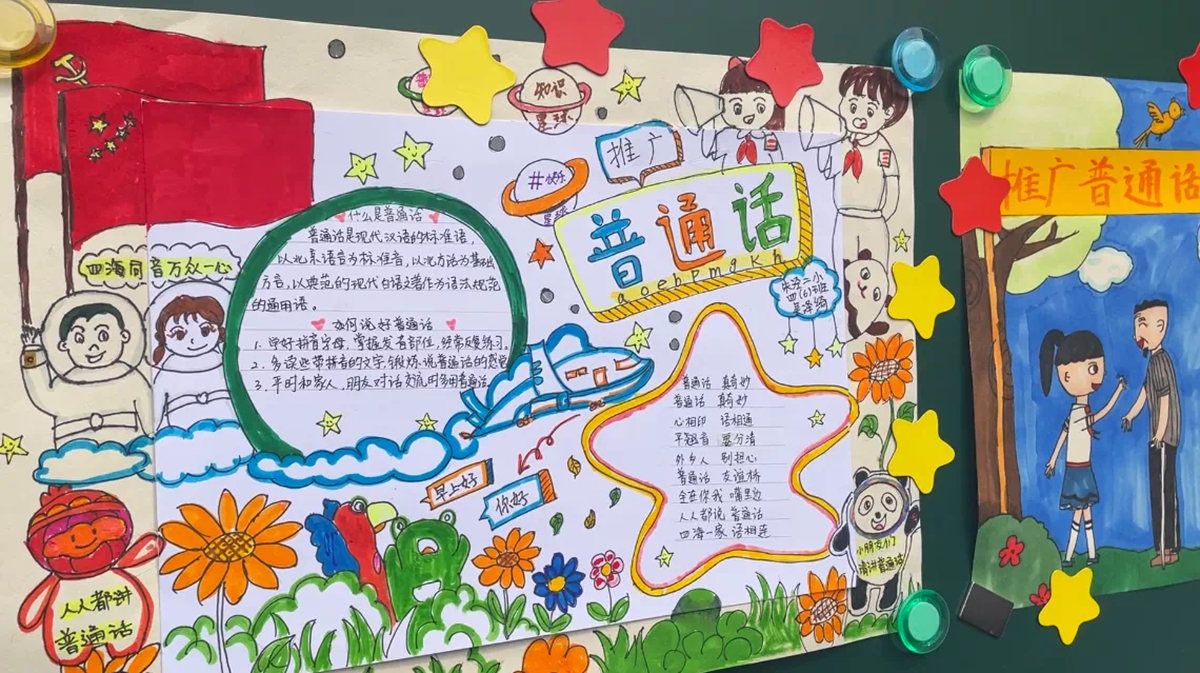 知识
星球
#快乐
星球
推广
普通话
a o e b p m g k h
朱汾二小
四(6)班
四海同音万众一心
什么是普通话
普通话是现代汉语的标准语，
以北京语音为标准音，以北方话为基础
方言，以典范的现代白话文著作为语法规范
的通用语。
如何说好普通话
1. 学好拼音字母，掌握发音部位，经常反复练习。
2. 多读些带拼音的文字，锻炼说普通话的感觉
3. 平时和家人、朋友对话交流时多用普通话
早上好
你好
普通话 真奇妙
普通话 真奇妙
心相印 语相通
平翘音 要分清
外乡人 别担心
普通话 友谊桥
全在你我 嘴里边
人人都说 普通话
四海一家 语相连
人人都讲
普通话
小朋友们
请讲普通话
推广普通话